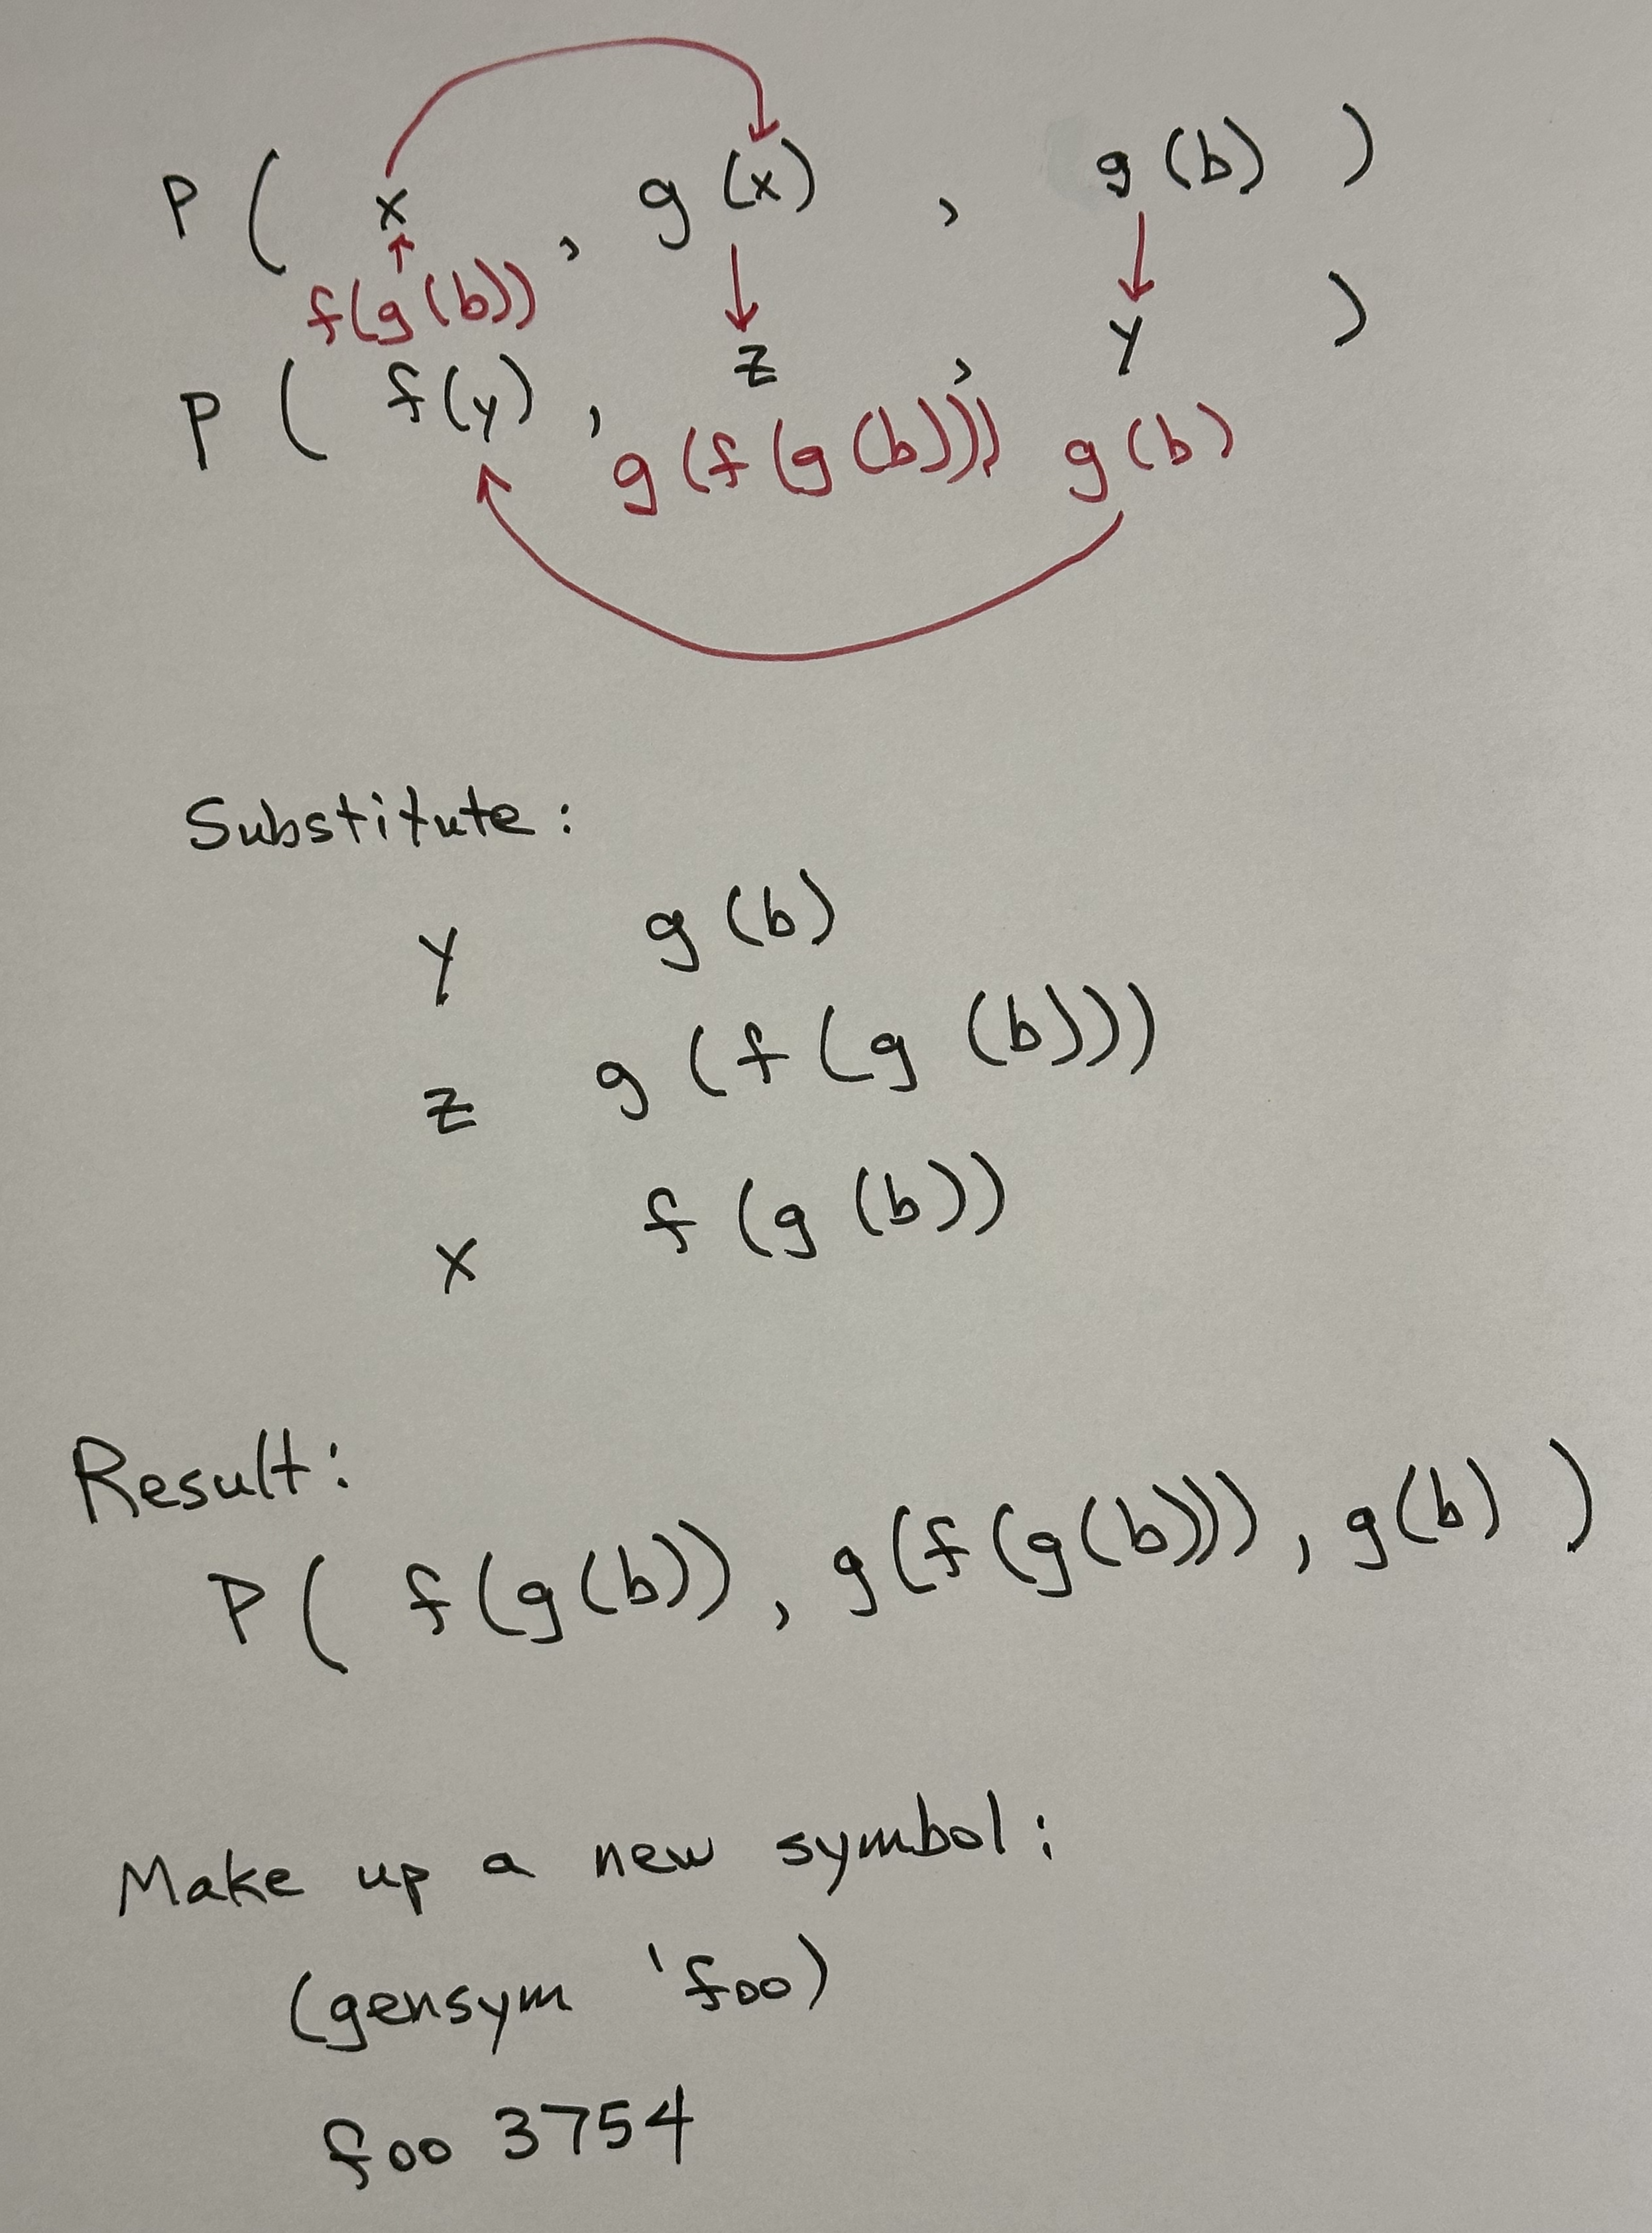 P ( x , g (x) , g (b) )
f(g(b))
P ( f(y) , z , y )
g(f(g(b))) g(b)
Substitute:
y g(b)
z g(f(g(b)))
x f(g(b))
Result:
P( f(g(b)), g(f(g(b))), g(b) )
Make up a new symbol:
(gensym 'foo)
foo 3754